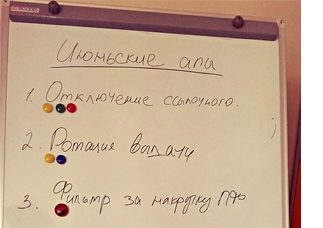 Июньские апы
1. Отключение ссылочного.
2. Ротация выдачи
3. Фильтр за накрутку ПФ